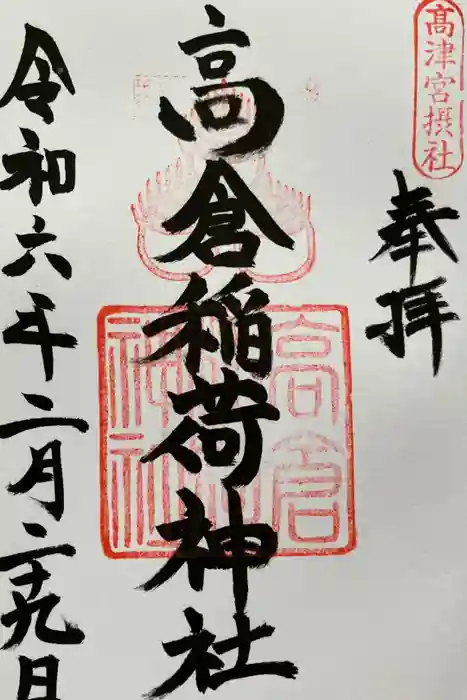 髙津宮摂社
奉拝
高倉稲荷神社
令和六年二月二十九日